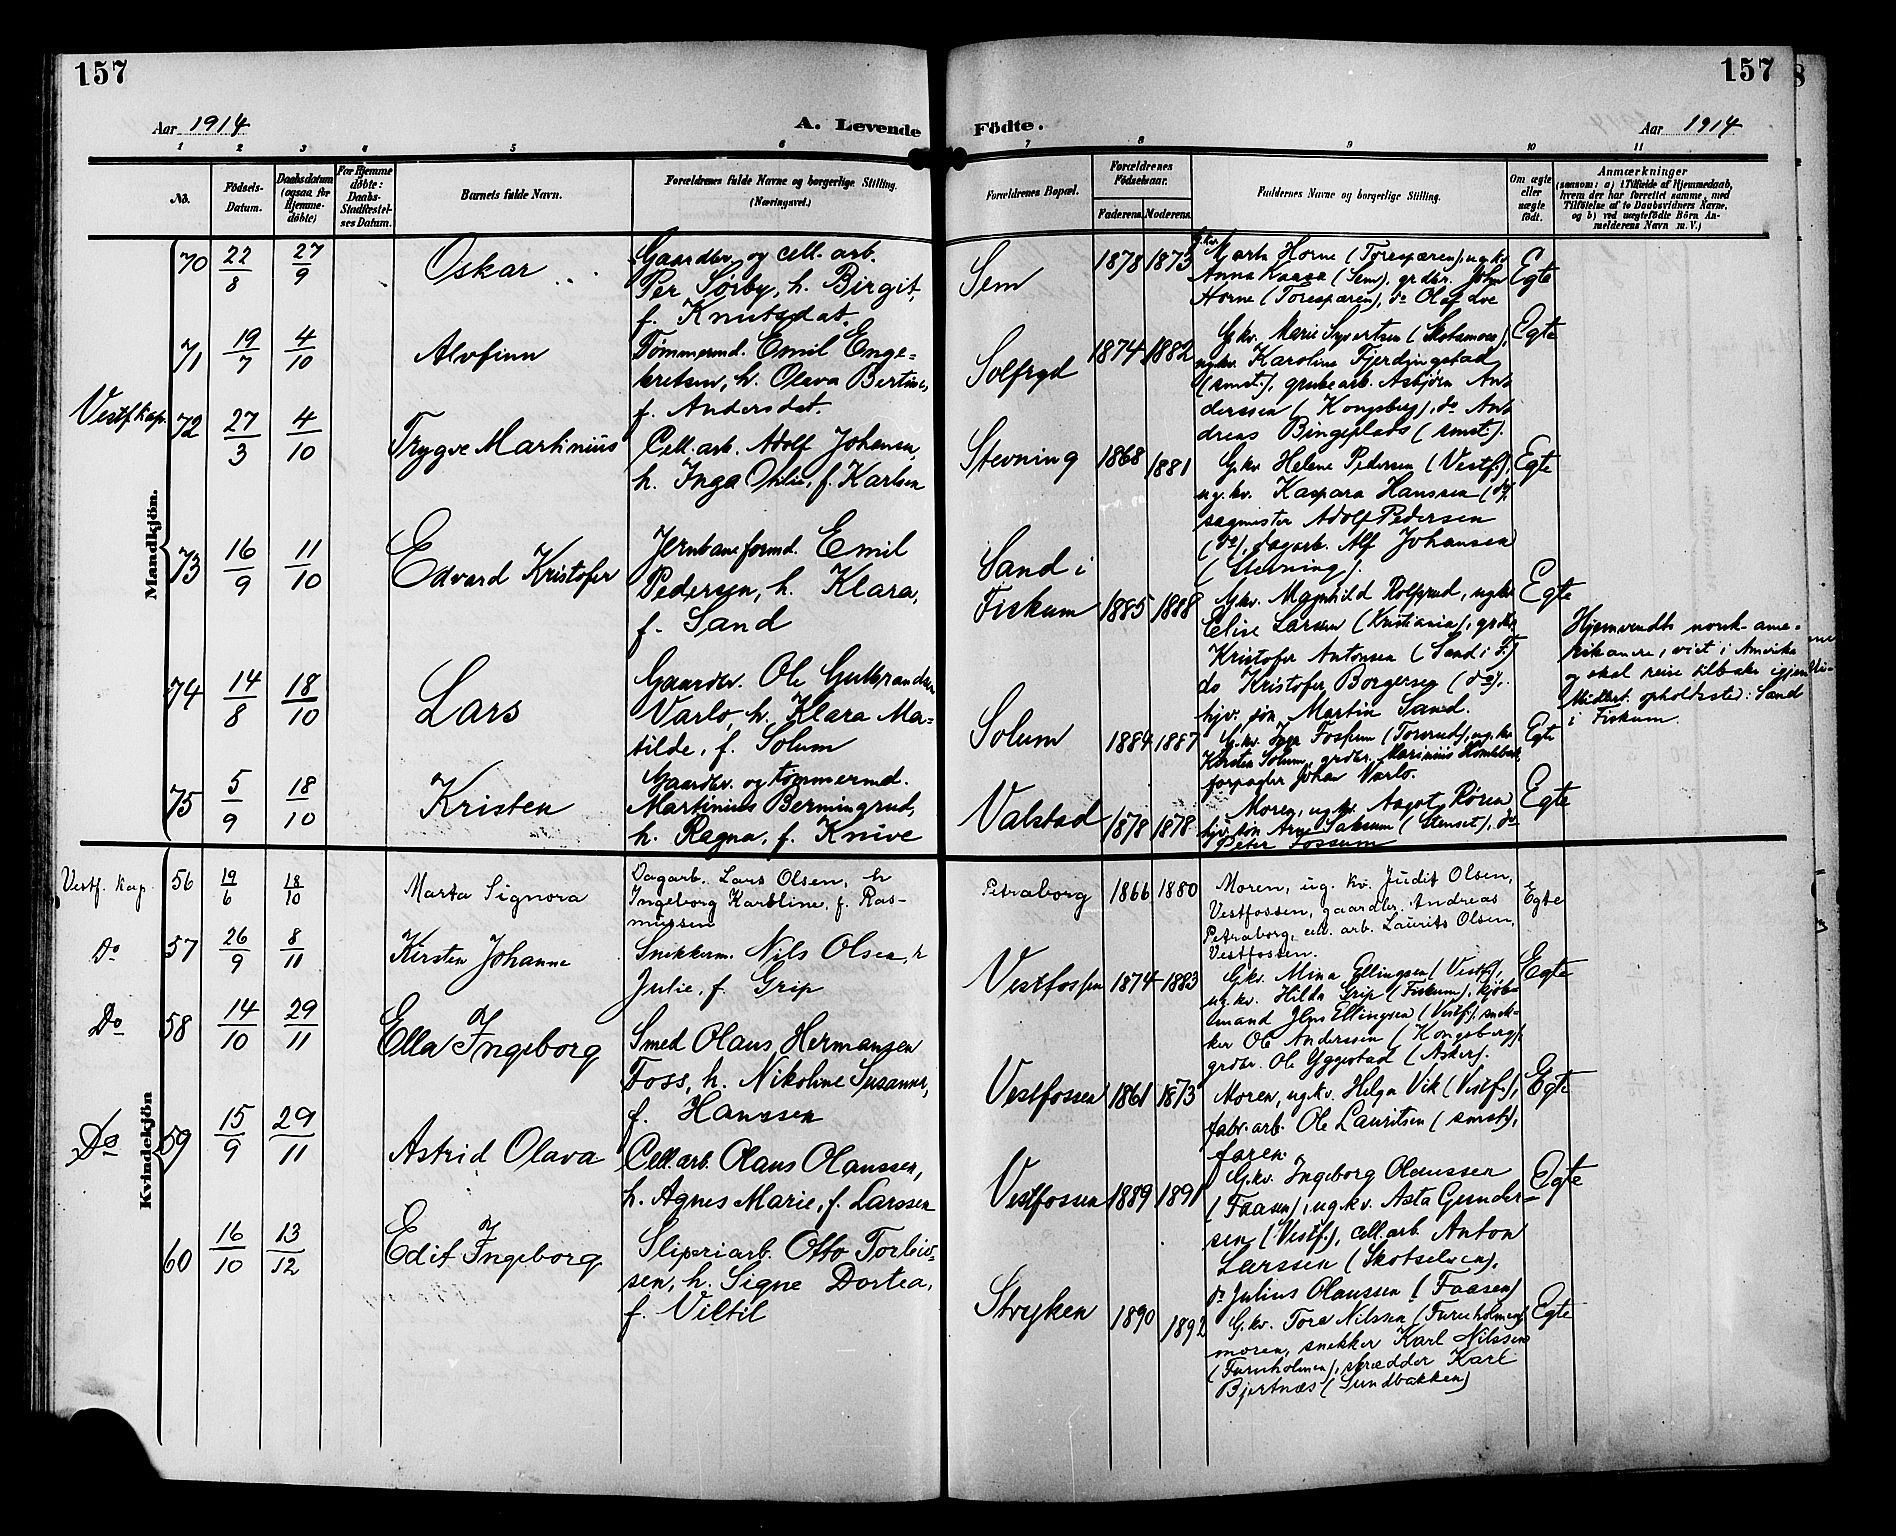 157
157
Aar 1914
A. Levende
Födte.
Aar 1914
1 2 3 4 5 6 7 8 9 10 11
No.
Födsels-
Datum.
Daabsdatum
(ogsaa for
Hjemme-
döbte)
For Hjemme
döbte:
Daabs-
Stadfæstel-
ses Datum.
Barnets fulde Navn.
Forældrenes fulde Navne og borgerlige Stilling.
(Næringsvei.)
Forældrenes Bopæl.
Forældrenes
Födselsaar.
Faderens. Moderens.
Faddernes Navne og borgerlige Stilling.
Om ægte
eller
uægte
födt.
Anmærkninger
(saasom: a) i Tilfælde af Hjemmedaab,
hvem der har forrettet samme, med
Tilföielse af to Daabsvidners Navne,
og b) ved uægtefödte Börn An-
melderens Navn m. V.)
Mandkjön.
70 22/8 27/9 Oskar
Gaardbr. og cell. arb.
Per Sørby, h. Birgit,
f. Knutsdat.
Sem 1878 1873
G.kv. Marta Horne (Torespæren), ug.kv.
Anna Kaasa (Sem), grdbr. John
Horne (Torespæren), do Olaf doe
Egte
71 19/7 4/10 Alvfinn
Tømmermd. Emil Enge-
bretsen, h. Olava Bertine,
f. Andersdat.
Solfryd 1874 1882
G.kv. Marie Syvertsen (Skotsmoen),
ug.kv. Karoline Fjerdingstad
(smst.), grubearb. Asbjørn An-
derssen (Kongsberg), do An-
dreas Bingeplads (smst.).
Egte
Vestf. kap.
72 27/3 4/10 Trygve Martinius
Cell. arb. Adolf Johansen,
h. Inga Othilie, f. Karlsen
Stevning 1868 1881
G.kv. Helene Pedersen (Vestf.),
ug. kv. Kaspara Hanssen (do),
sagmester Adolf Pedersen
(do), dagarb. Alf Johansen
(Stevning).
Egte
73 16/9 11/10 Edvard Kristofer
Jernbaneformd. Emil
Pedersen, h. Klara,
f. Sand
Sand i
Fiskum 1885 1888
G.kv. Magnhild Rolfsrud, ug.kv.
Elise Larssen (Kristiania), grdbr.
Kristofer Antonsen (Sand i F.)
do Kristofer Borgersen (do),
hjv. søn Martin Sand.
Egte
Hjemvendte norsk-ame-
rikanere, viet i Amerika
og skal reise tilbake igjen
Midlert. opholdssted: Sand
i Fiskum.
74 14/8 18/10 Lars
Gaardbr. Ole Gulbrandsen
Varlo, h. Klara Ma-
tilde, f. Solum
Solum 1884 1887
G.kv. Inga Fossum (Torsrud), ug.kv.
Kirsten Solum, grdbr. Marinius Homlebæk,
forpagter Johan Varlo.
Egte
75 5/9 18/10 Kristen
Gaardbr. og tømmermd.
Martinius Bermingrud,
h. Ragna, f. Knive
Valstad 1878 1878
Moren, ug.kv. Aagot Røren
hjv. søn Arne Saksum (Stenset), do
Peter Fossum
Egte
Kvindekjön
Vestf. kap. 56 19/6 18/10 Marta Signora
Dagarb. Lars Olsen, h
Ingeborg Karoline, f. Ras-
mussen
Petraborg 1866 1880
Moren, ug. kv. Judit Olsen,
Vestfossen, gaardbr. Andreas
Petraborg, cell. arb. Laurits Olsen,
Vestfossen.
Egte
Do 57 26/9 8/11 Kirsten Johanne
Snekkerm. Nils Olsen, h
Julie, f. Grip
Vestfossen 1874 1883
G.kv. Mina Ellingsen (Vestf.),
ug. kv. Hilda Grip (Fiskum), kjøb-
mand Jens Ellingsen (Vestf.), snek-
ker Ole Anderssen (Kongsberg),
grdbr. Ole Yggestad (Asker).
Egte
Do 58 14/10 29/11 Ella Ingeborg
Smed Olaus Hermansen
Foss, h. Nikoline Susanne,
f. Hanssen
Vestfossen 1861 1873
Moren, ug.kv. Helga Vik (Vestf.),
fabr.arb. Ole Lauritsen (smst),
faren.
Egte
Do 59 15/9 29/11 Astrid Olava
Cell.arb. Olaus Olaussen,
h. Agnes Marie, f. Larssen
Vestfossen 1889 1891
G.kv. Ingeborg Olaussen
(Faasen), ug.kv. Asta Gunder-
sen (Vestf.), cell.arb. Anton
Larssen (Skotselven),
do Julius Olaussen (Faasen)
Egte
60 16/10 13/12 Edit Ingeborg
Sliperiarb. Otto Torbiø-
sen, h. Signe Dortea,
f. Viltil
Stryken 1890 1892
G.kv. Tora Nilssen (Furuholmen)
moren, snekker Karl Nilssen
(Furuholmen), skrædder Karl
Bjertnæs (Sundbakken)
Egte